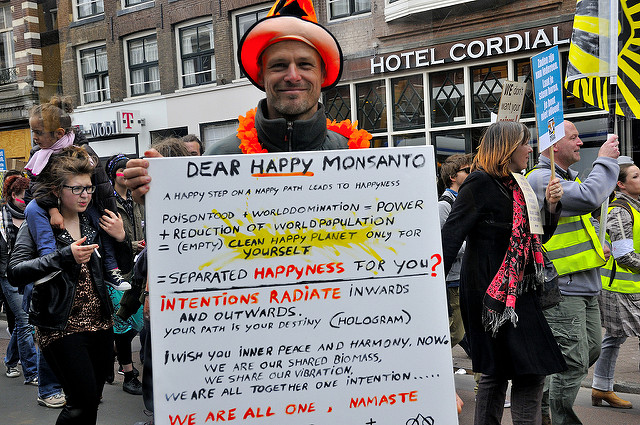 HOTEL CORDIAL
Mobil T
WE don't
want your
DEAR HAPPY MONSANTO
A HAPPY STEP ON A HAPPY PATH LEADS TO HAPPYNESS
POISONFOOD + WORLDDOMINATION = POWER
+ REDUCTION OF WORLDPOPULATION
= (EMPTY) CLEAN HAPPY PLANET ONLY FOR
YOURSELF
= SEPARATED HAPPYNESS FOR YOU?
INTENTIONS RADIATE INWARDS
AND OUTWARDS.
YOUR PATH IS YOUR DESTINY (HOLOGRAM)
I WISH YOU INNER PEACE AND HARMONY, NOW.
WE ARE OUR SHARED BIOMASS,
WE SHARE OUR VIBRATION,
WE ARE ALL TOGETHER ONE INTENTION.....
WE ARE ALL ONE, NAMASTE